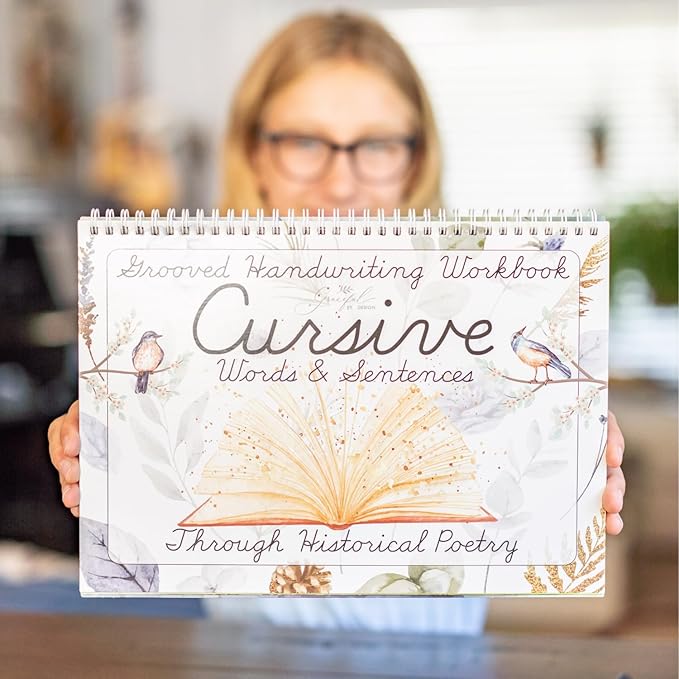 Grooved Handwriting Workbook
Graceful
BY DESIGN
Cursive
Words & Sentences
Through Historical Poetry